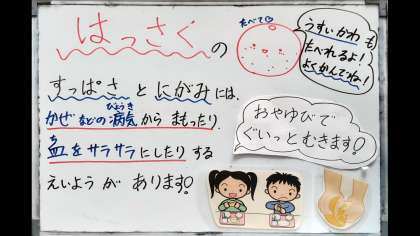 はっさくの
たべて♡
うすいかわも
たべれるよ!
よくかんでね!
すっぱさとにがみには、
びょうき
かぜなどの病気からまもったり
ち
血をサラサラにしたりする
えいようがあります!
おやゆびで
ぐいっとむきます!